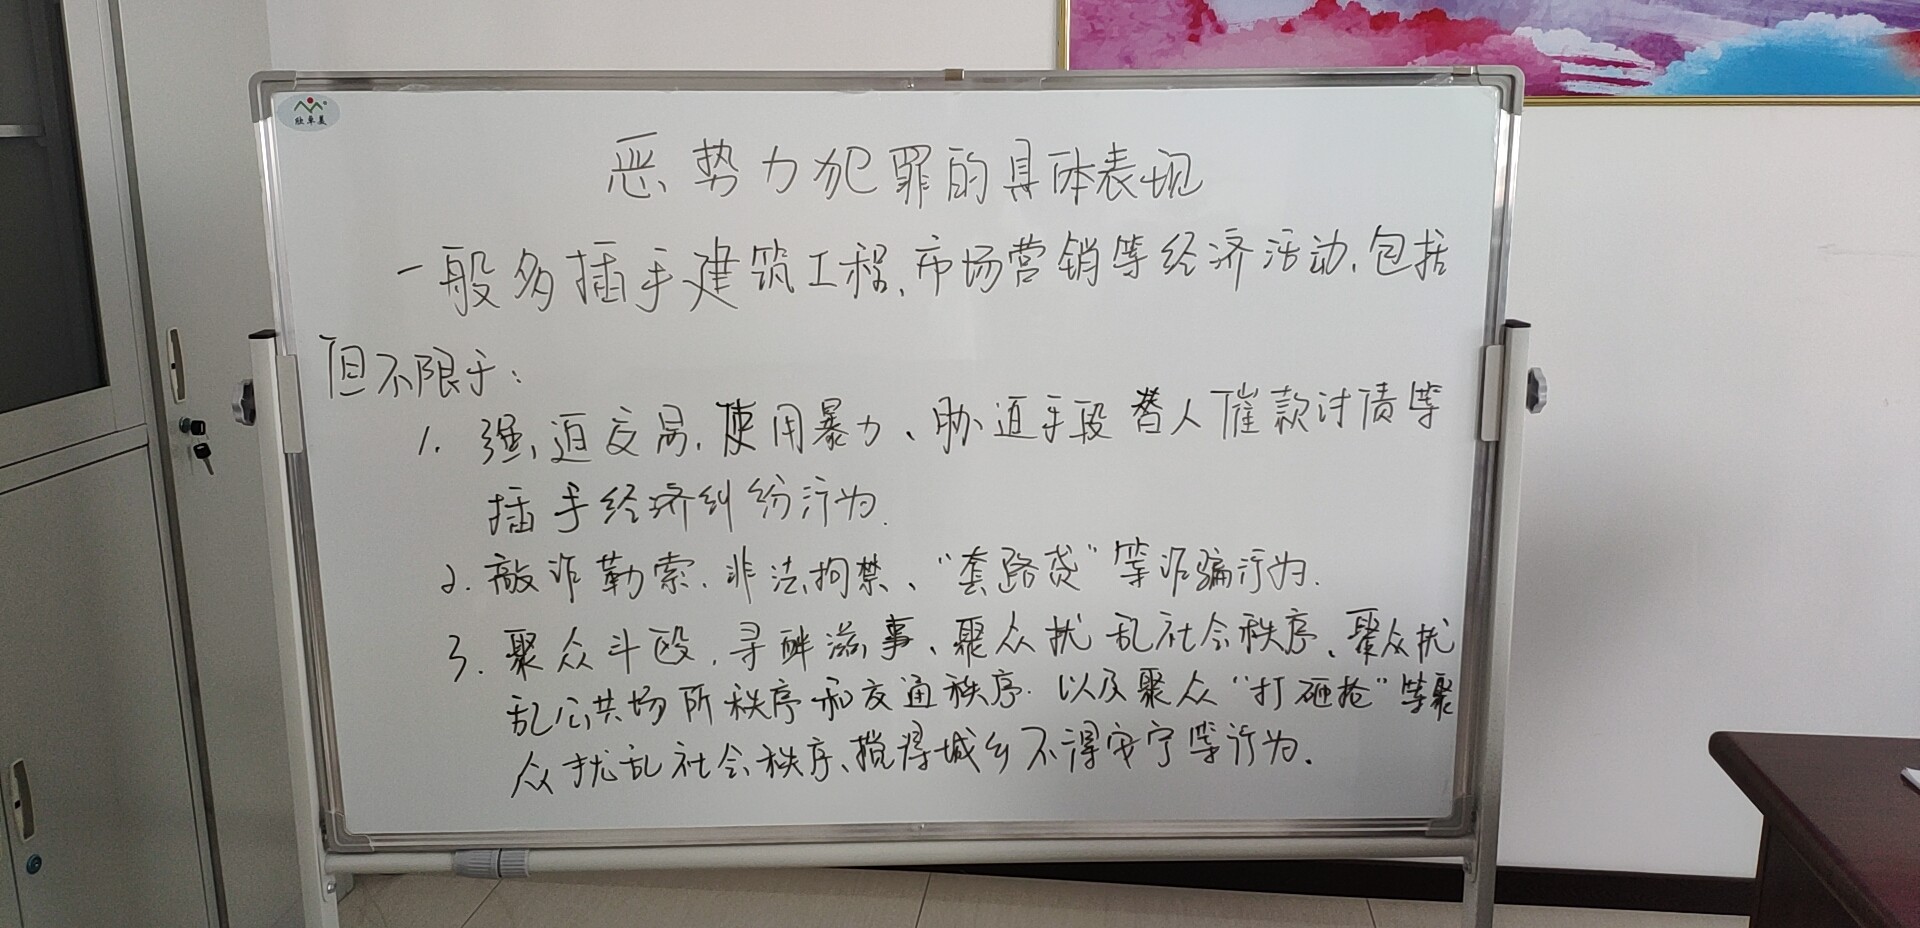 欣卓美
恶势力犯罪的具体表现
一般多插手建筑工程、市场营销等经济活动,包括
但不限于:
1. 强迫交易,使用暴力、胁迫手段替人催款讨债等
插手经济纠纷行为.
2. 敲诈勒索、非法拘禁、“套路贷”等诈骗行为.
3. 聚众斗殴,寻衅滋事、聚众扰乱社会秩序、聚众扰
乱公共场所秩序和交通秩序.以及聚众“打砸抢”等聚
众扰乱社会秩序、搅得城乡不得安宁等行为.